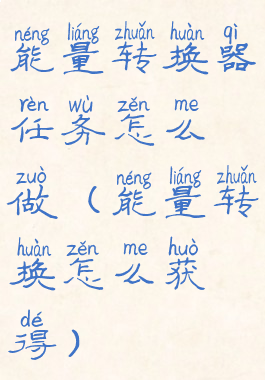 néng liáng zhuǎn huàn qì
能量转换器
rèn wù zěn me
任务怎么
zuò néng liáng zhuǎn
做（能量转
huàn zěn me huò
换怎么获
dé
得）